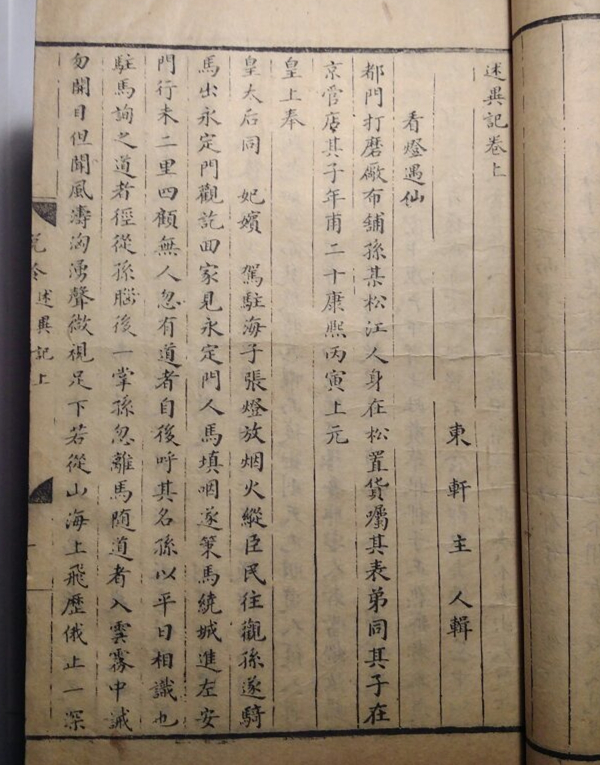 述異記卷上
東軒主人輯
看燈遇仙
都門打磨厰布舖孫某松江人身在松置貨囑其表弟同其子在
京管店其子年甫二十康熙丙寅上元
皇上奉
皇太后同 妃嬪 駕駐海子張燈放烟火縱臣民往觀孫遂騎
馬出永定門觀訖回家見永定門人馬填咽遂策馬繞城進左安
門行未二里四顧無人忽有道者自後呼其名孫以平日相識也
駐馬詢之道者徑從孫腦後一掌孫忽離馬隨道者入雲霧中誡
勿開目但聞風濤洶湧聲微視足下若從山海上飛歷俄止一深
說鈴 述異記上